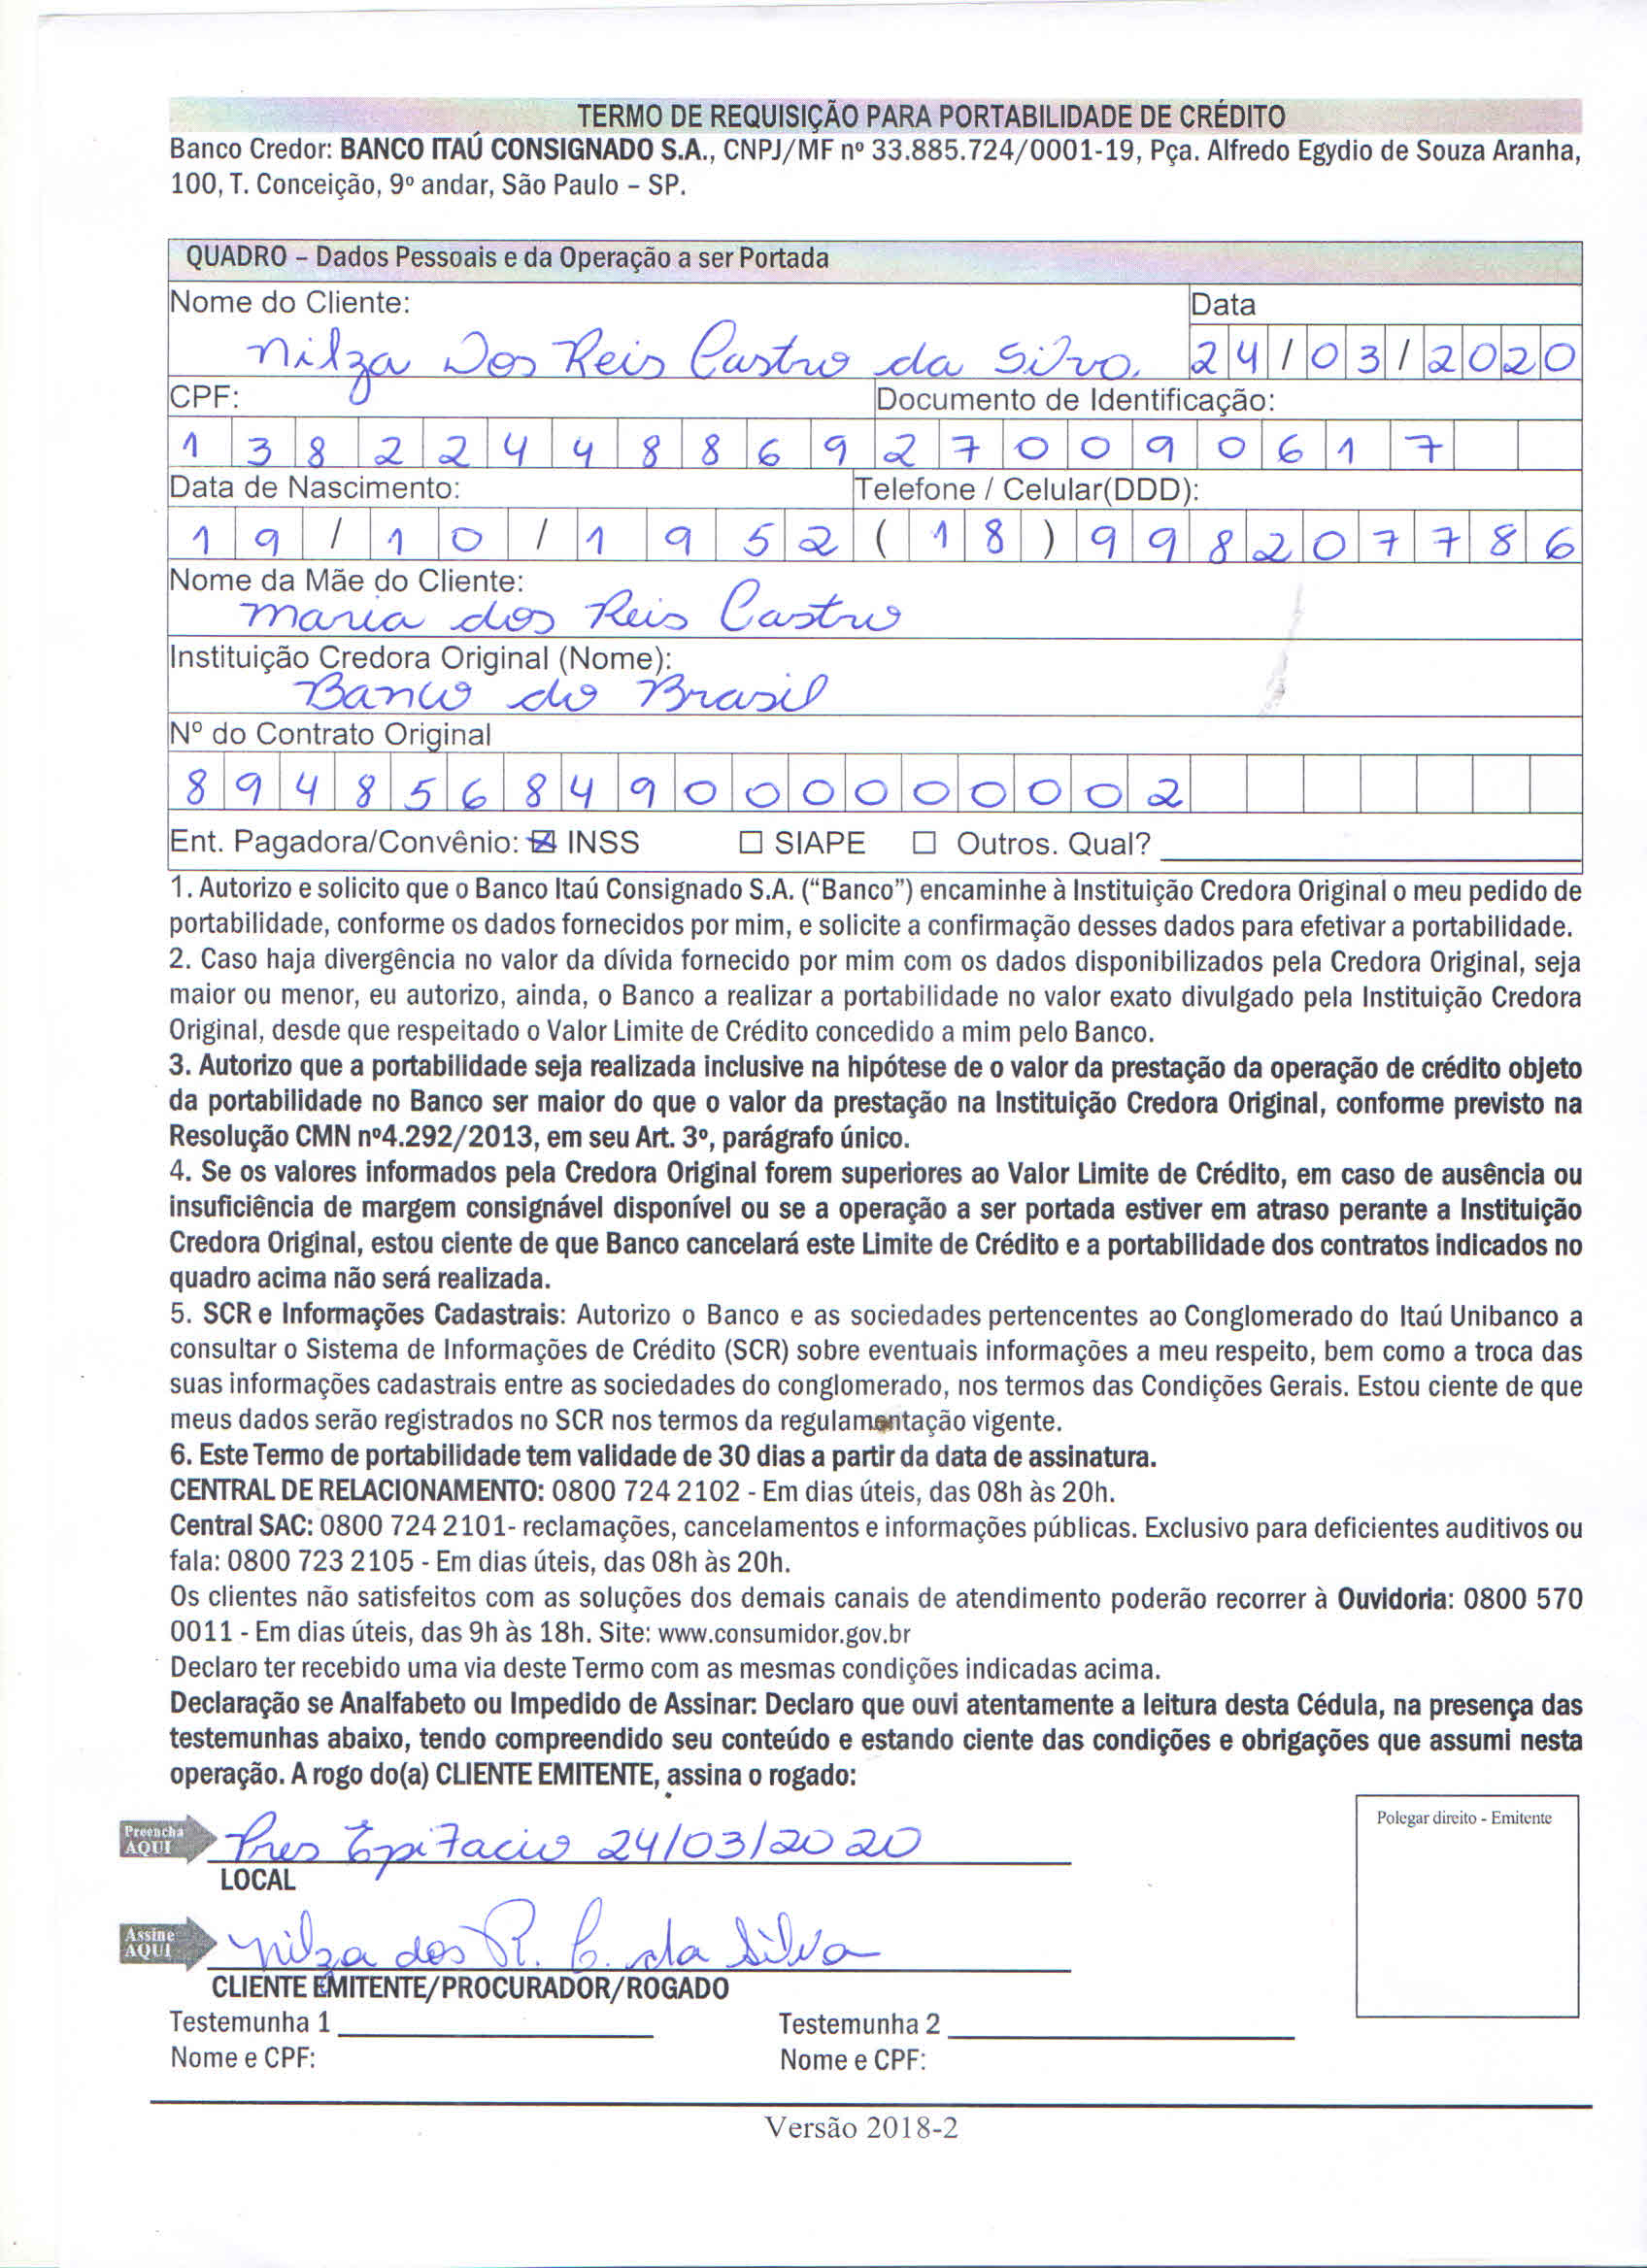 TERMO DE REQUISIÇÃO PARA PORTABILIDADE DE CRÉDITO
Banco Credor: BANCO ITAÚ CONSIGNADO S.A., CNPJ/MF nº 33.885.724/0001-19, Pça. Alfredo Egydio de Souza Aranha,
100, T. Conceição, 9º andar, São Paulo – SP.
QUADRO – Dados Pessoais e da Operação a ser Portada
Nome do Cliente: Data
Nilza Dos Reis Castro da Silva. 24/03/2020
CPF: Documento de Identificação:
13822448869 270090617
Data de Nascimento: Telefone / Celular(DDD):
19/10/1952 (18) 998207786
Nome da Mãe do Cliente:
Maria dos Reis Castro
Instituição Credora Original (Nome):
Banco do Brasil
Nº do Contrato Original
894856849000000002
Ent. Pagadora/Convênio: ☒ INSS ☐ SIAPE ☐ Outros. Qual?
1. Autorizo e solicito que o Banco Itaú Consignado S.A. (“Banco”) encaminhe à Instituição Credora Original o meu pedido de
portabilidade, conforme os dados fornecidos por mim, e solicite a confirmação desses dados para efetivar a portabilidade.
2. Caso haja divergência no valor da dívida fornecido por mim com os dados disponibilizados pela Credora Original, seja
maior ou menor, eu autorizo, ainda, o Banco a realizar a portabilidade no valor exato divulgado pela Instituição Credora
Original, desde que respeitado o Valor Limite de Crédito concedido a mim pelo Banco.
3. Autorizo que a portabilidade seja realizada inclusive na hipótese de o valor da prestação da operação de crédito objeto
da portabilidade no Banco ser maior do que o valor da prestação na Instituição Credora Original, conforme previsto na
Resolução CMN nº4.292/2013, em seu Art. 3º, parágrafo único.
4. Se os valores informados pela Credora Original forem superiores ao Valor Limite de Crédito, em caso de ausência ou
insuficiência de margem consignável disponível ou se a operação a ser portada estiver em atraso perante a Instituição
Credora Original, estou ciente de que Banco cancelará este Limite de Crédito e a portabilidade dos contratos indicados no
quadro acima não será realizada.
5. SCR e Informações Cadastrais: Autorizo o Banco e as sociedades pertencentes ao Conglomerado do Itaú Unibanco a
consultar o Sistema de Informações de Crédito (SCR) sobre eventuais informações a meu respeito, bem como a troca das
suas informações cadastrais entre as sociedades do conglomerado, nos termos das Condições Gerais. Estou ciente de que
meus dados serão registrados no SCR nos termos da regulamentação vigente.
6. Este Termo de portabilidade tem validade de 30 dias a partir da data de assinatura.
CENTRAL DE RELACIONAMENTO: 0800 724 2102 - Em dias úteis, das 08h às 20h.
Central SAC: 0800 724 2101- reclamações, cancelamentos e informações públicas. Exclusivo para deficientes auditivos ou
fala: 0800 723 2105 - Em dias úteis, das 08h às 20h.
Os clientes não satisfeitos com as soluções dos demais canais de atendimento poderão recorrer à Ouvidoria: 0800 570
0011 - Em dias úteis, das 9h às 18h. Site: www.consumidor.gov.br
Declaro ter recebido uma via deste Termo com as mesmas condições indicadas acima.
Declaração se Analfabeto ou Impedido de Assinar: Declaro que ouvi atentamente a leitura desta Cédula, na presença das
testemunhas abaixo, tendo compreendido seu conteúdo e estando ciente das condições e obrigações que assumi nesta
operação. A rogo do(a) CLIENTE EMITENTE, assina o rogado:
Polegar direito - Emitente
Preencha
AQUI
Pres Epitacio 24/03/2020
LOCAL
Assine
AQUI
Nilza dos R. C. da Silva
CLIENTE EMITENTE/PROCURADOR/ROGADO
Testemunha 1 Testemunha 2
Nome e CPF: Nome e CPF:
Versão 2018-2